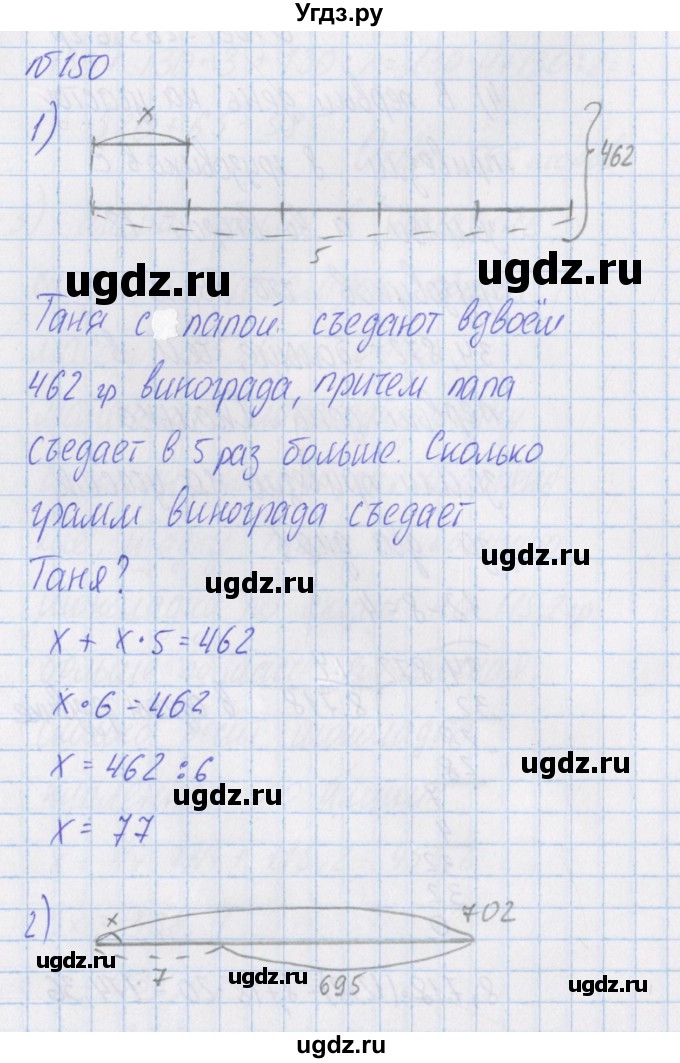 Угдз.ру
№150
1)
x
462
5
ugdz.ru
ugdz.ru
Таня с папой съедают вдвоём
462 гр винограда, причем папа
съедает в 5 раз больше. Сколько
грамм винограда съедает
ugdz.ru
Таня?
ugdz.ru
x + x·5=462
x·6=462
x = 462:6
ugdz.ru
ugdz.ru
x = 77
2)
x
702
ugdz.ru
7
695
ugdz.ru
ugdz.ru
ugdz.ru